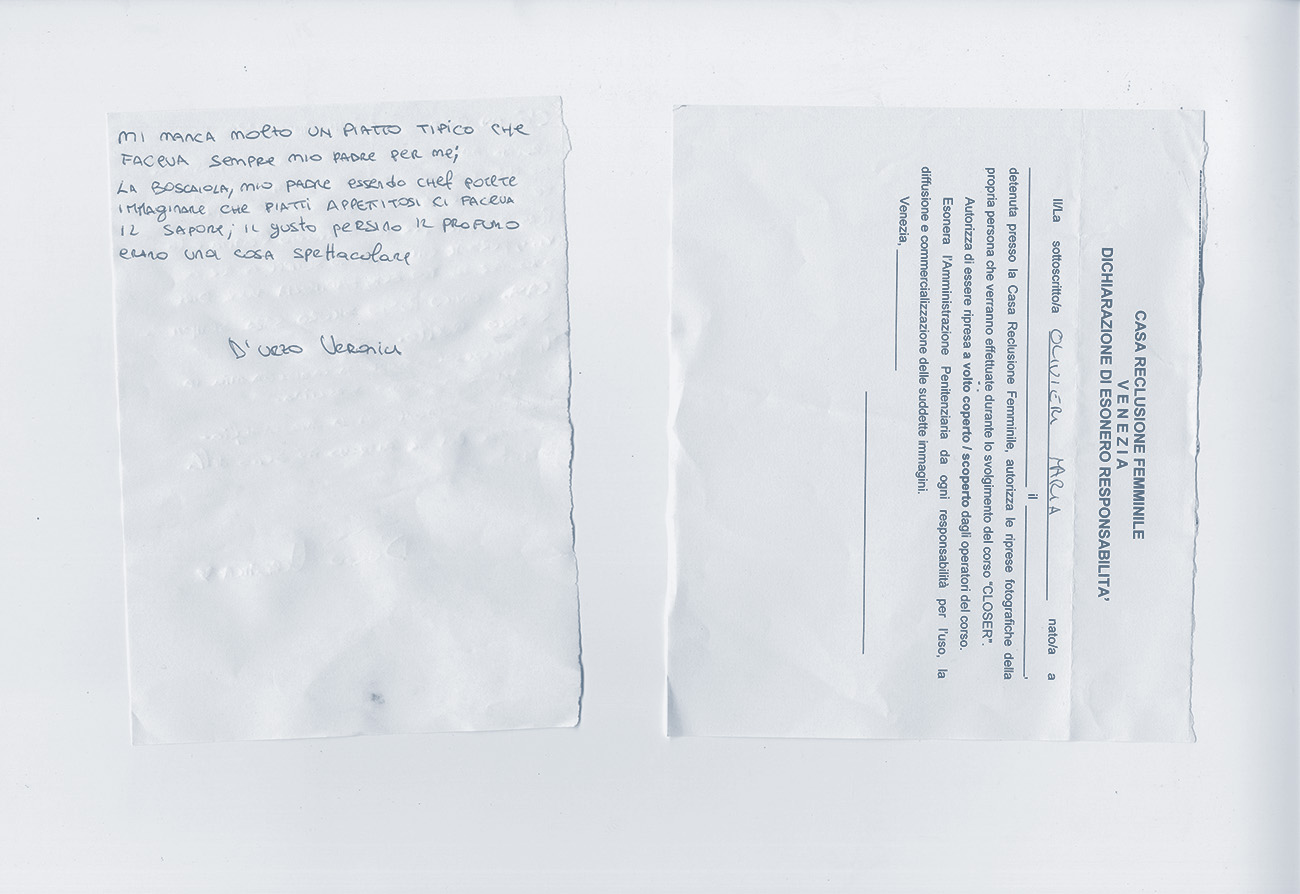 MI MANCA MOLTO UN PIATTO TIPICO CHE
FACEVA SEMPRE MIO PADRE PER ME;
LA BOSCAIOLA, MIO PADRE ESSENDO CHEF POTETE
IMMAGINARE CHE PIATTI APPETITOSI CI FACEVA
IL SAPORE; IL GUSTO PERSINO IL PROFUMO
ERANO UNA COSA SPETTACOLARE
D'URZO VERONICA
CASA RECLUSIONE FEMMINILE
VENEZIA
DICHIARAZIONE DI ESONERO RESPONSABILITA'
Il/La sottoscritto/a OLIVIERI MARIA nato/a a
il ,
detenuta presso la Casa Reclusione Femminile, autorizza le riprese fotografiche della
propria persona che verranno effettuate durante lo svolgimento del corso "CLOSER".
Autorizza di essere ripresa a volto coperto / scoperto dagli operatori del corso.
Esonera l'Amministrazione Penitenziaria da ogni responsabilità per l'uso, la
diffusione e commercializzazione delle suddette immagini.
Venezia,